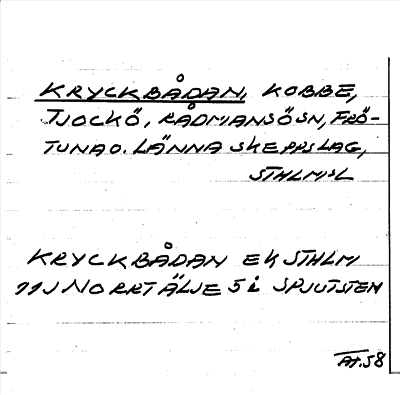 KRYCKBÅDAN, KOBBE,
TJOCKÖ, RÅDMANSÖSN, FRÖ-
TUNA O. LÄNNA SKEPPSLAG,
STHLMSL
KRYCKBÅDAN EK STHLM
11J NORRTÄLJE 5 i SPJUTSTEN
AT.58